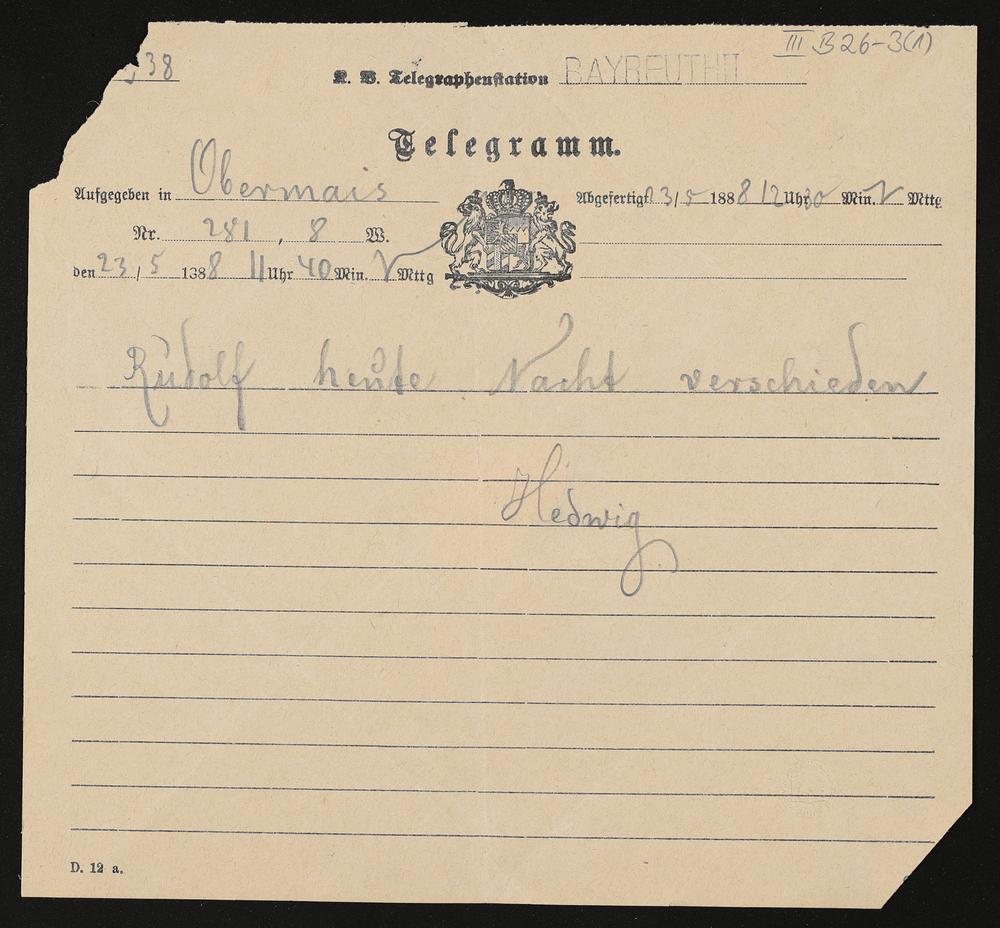 III B 26-3(1)
38
K. B. Telegraphenstation BAYREUTH II
Telegramm.
Aufgegeben in Obermais
Nr. 281, 8 W.
den 23/5 1388 11 Uhr 40 Min. V Mttg
Abgefertigt 23/5 1888 12 Uhr 30 Min. V Mttg
Rudolf heute Nacht verschieden
Hedwig
D. 12 a.